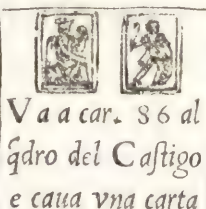 Va a car. 86 al
q̃dro del Caſtigo
e caua vna carta